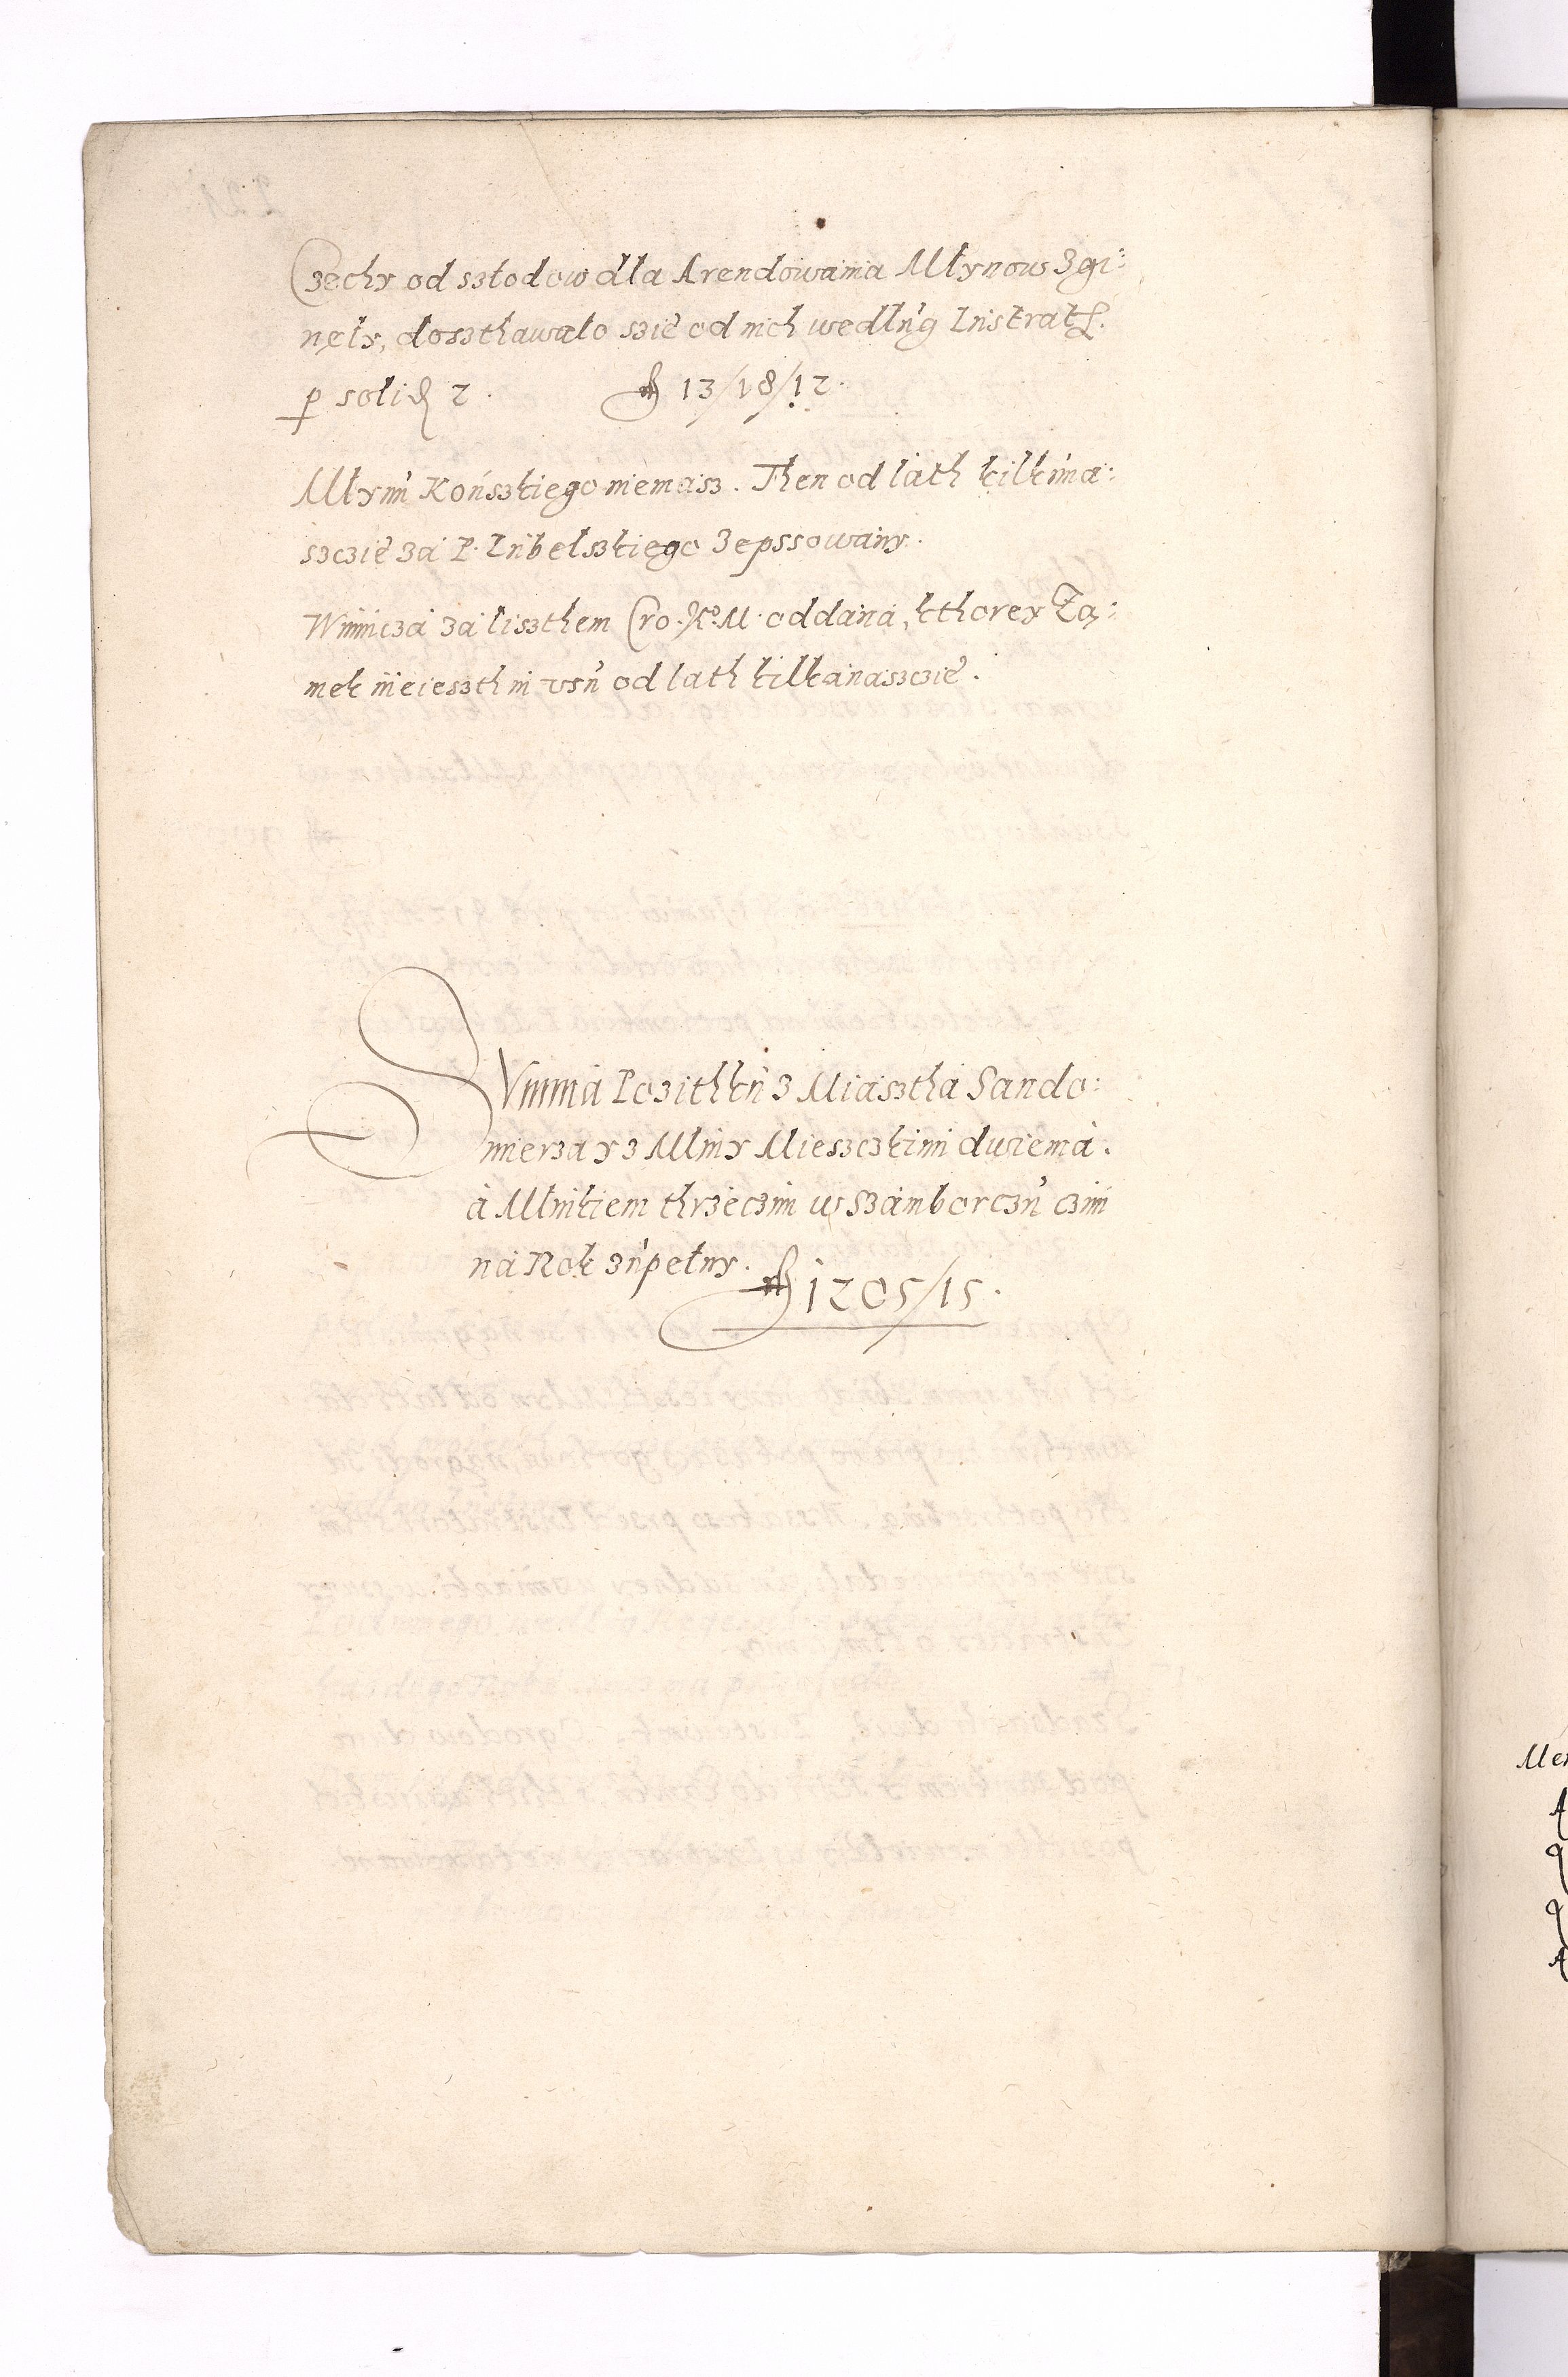 Czechy od szłodow dla Arendowania Młynow Zgi:
nęły, doszthawało szie od nich wedlug Lustrat.
p solid 2. fl 13/18/12.
Młyna Końszkiego niemasz. Then od lath kilkuna:
szczie za P. Lubelszkiego zepssowany.
Winnicza za liszthem Cro. Ko. M. oddana, kthorey Za:
mek nieieszth in vsu od lath kilkanaszczie.
Summa Pozithku z Miasztha Sando:
mierza y z Młiny Mieszczkimi dwiema.
a Młinkiem thrzeczim w Szamborczu czini
na Rok zupełny.
fl 1205/15.